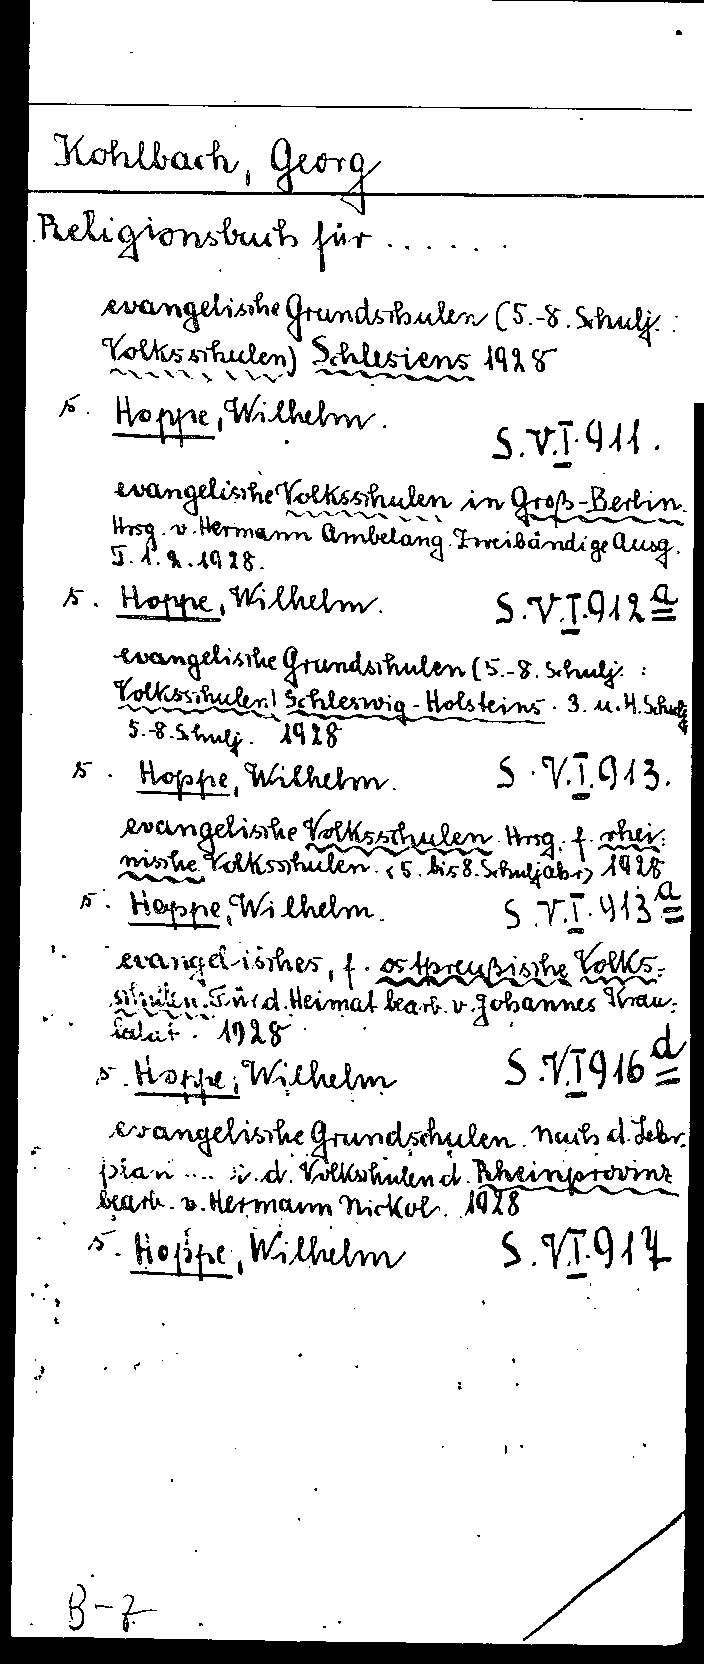 Kohlbach, Georg
Religionsbuch für ......
evangelische Grundschulen (5.-8. Schulj. :
Volksschulen) Schlesiens 1928
s. Hoppe, Wilhelm.
S.V.I.911.
evangelische Volksschulen in Groß-Berlin.
Hrsg. v. Hermann Ambelang. Zweibändige Ausg.
T. 1. 2. 1928.
s. Hoppe, Wilhelm.
S.V.I.912a
evangelische Grundschulen (5.-8. Schulj. :
Volksschulen) Schleswig-Holsteins. 3. u. 4. Schulj.
5.-8. Schulj. 1928
s. Hoppe, Wilhelm.
S.V.I.913.
evangelische Volksschulen. Hrsg. f. rhei-
nische Volksschulen. <5. bis 8. Schuljahr> 1928
s. Hoppe, Wilhelm.
S.V.I.913a
evangelisches, f. ostpreußische Volks-
schulen. Für d. Heimat bearb. v. Johannes Krau-
1928
s. Hoppe, Wilhelm
S.V.I916d
evangelische Grundschulen. Nach d. Lehr-
plan ... i. d. Volkschulen d. Rheinprovinz
bearb. v. Hermann Nickol. 1928
s. Hoppe, Wilhelm
S.V.I.917
B-7